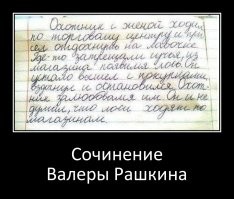 Охотник с женой ходил
по торговому центру и при
сел отдохнуть на лавочке.
Где-то затрещали сучья, из
магазина появился лось. Он
устало вышел с покупками,
вздохнул и остановился. Охот
ник залюбовался им. Он и не
думал, что лоси ходят по
магазинам.
Сочинение
Валеры Рашкина